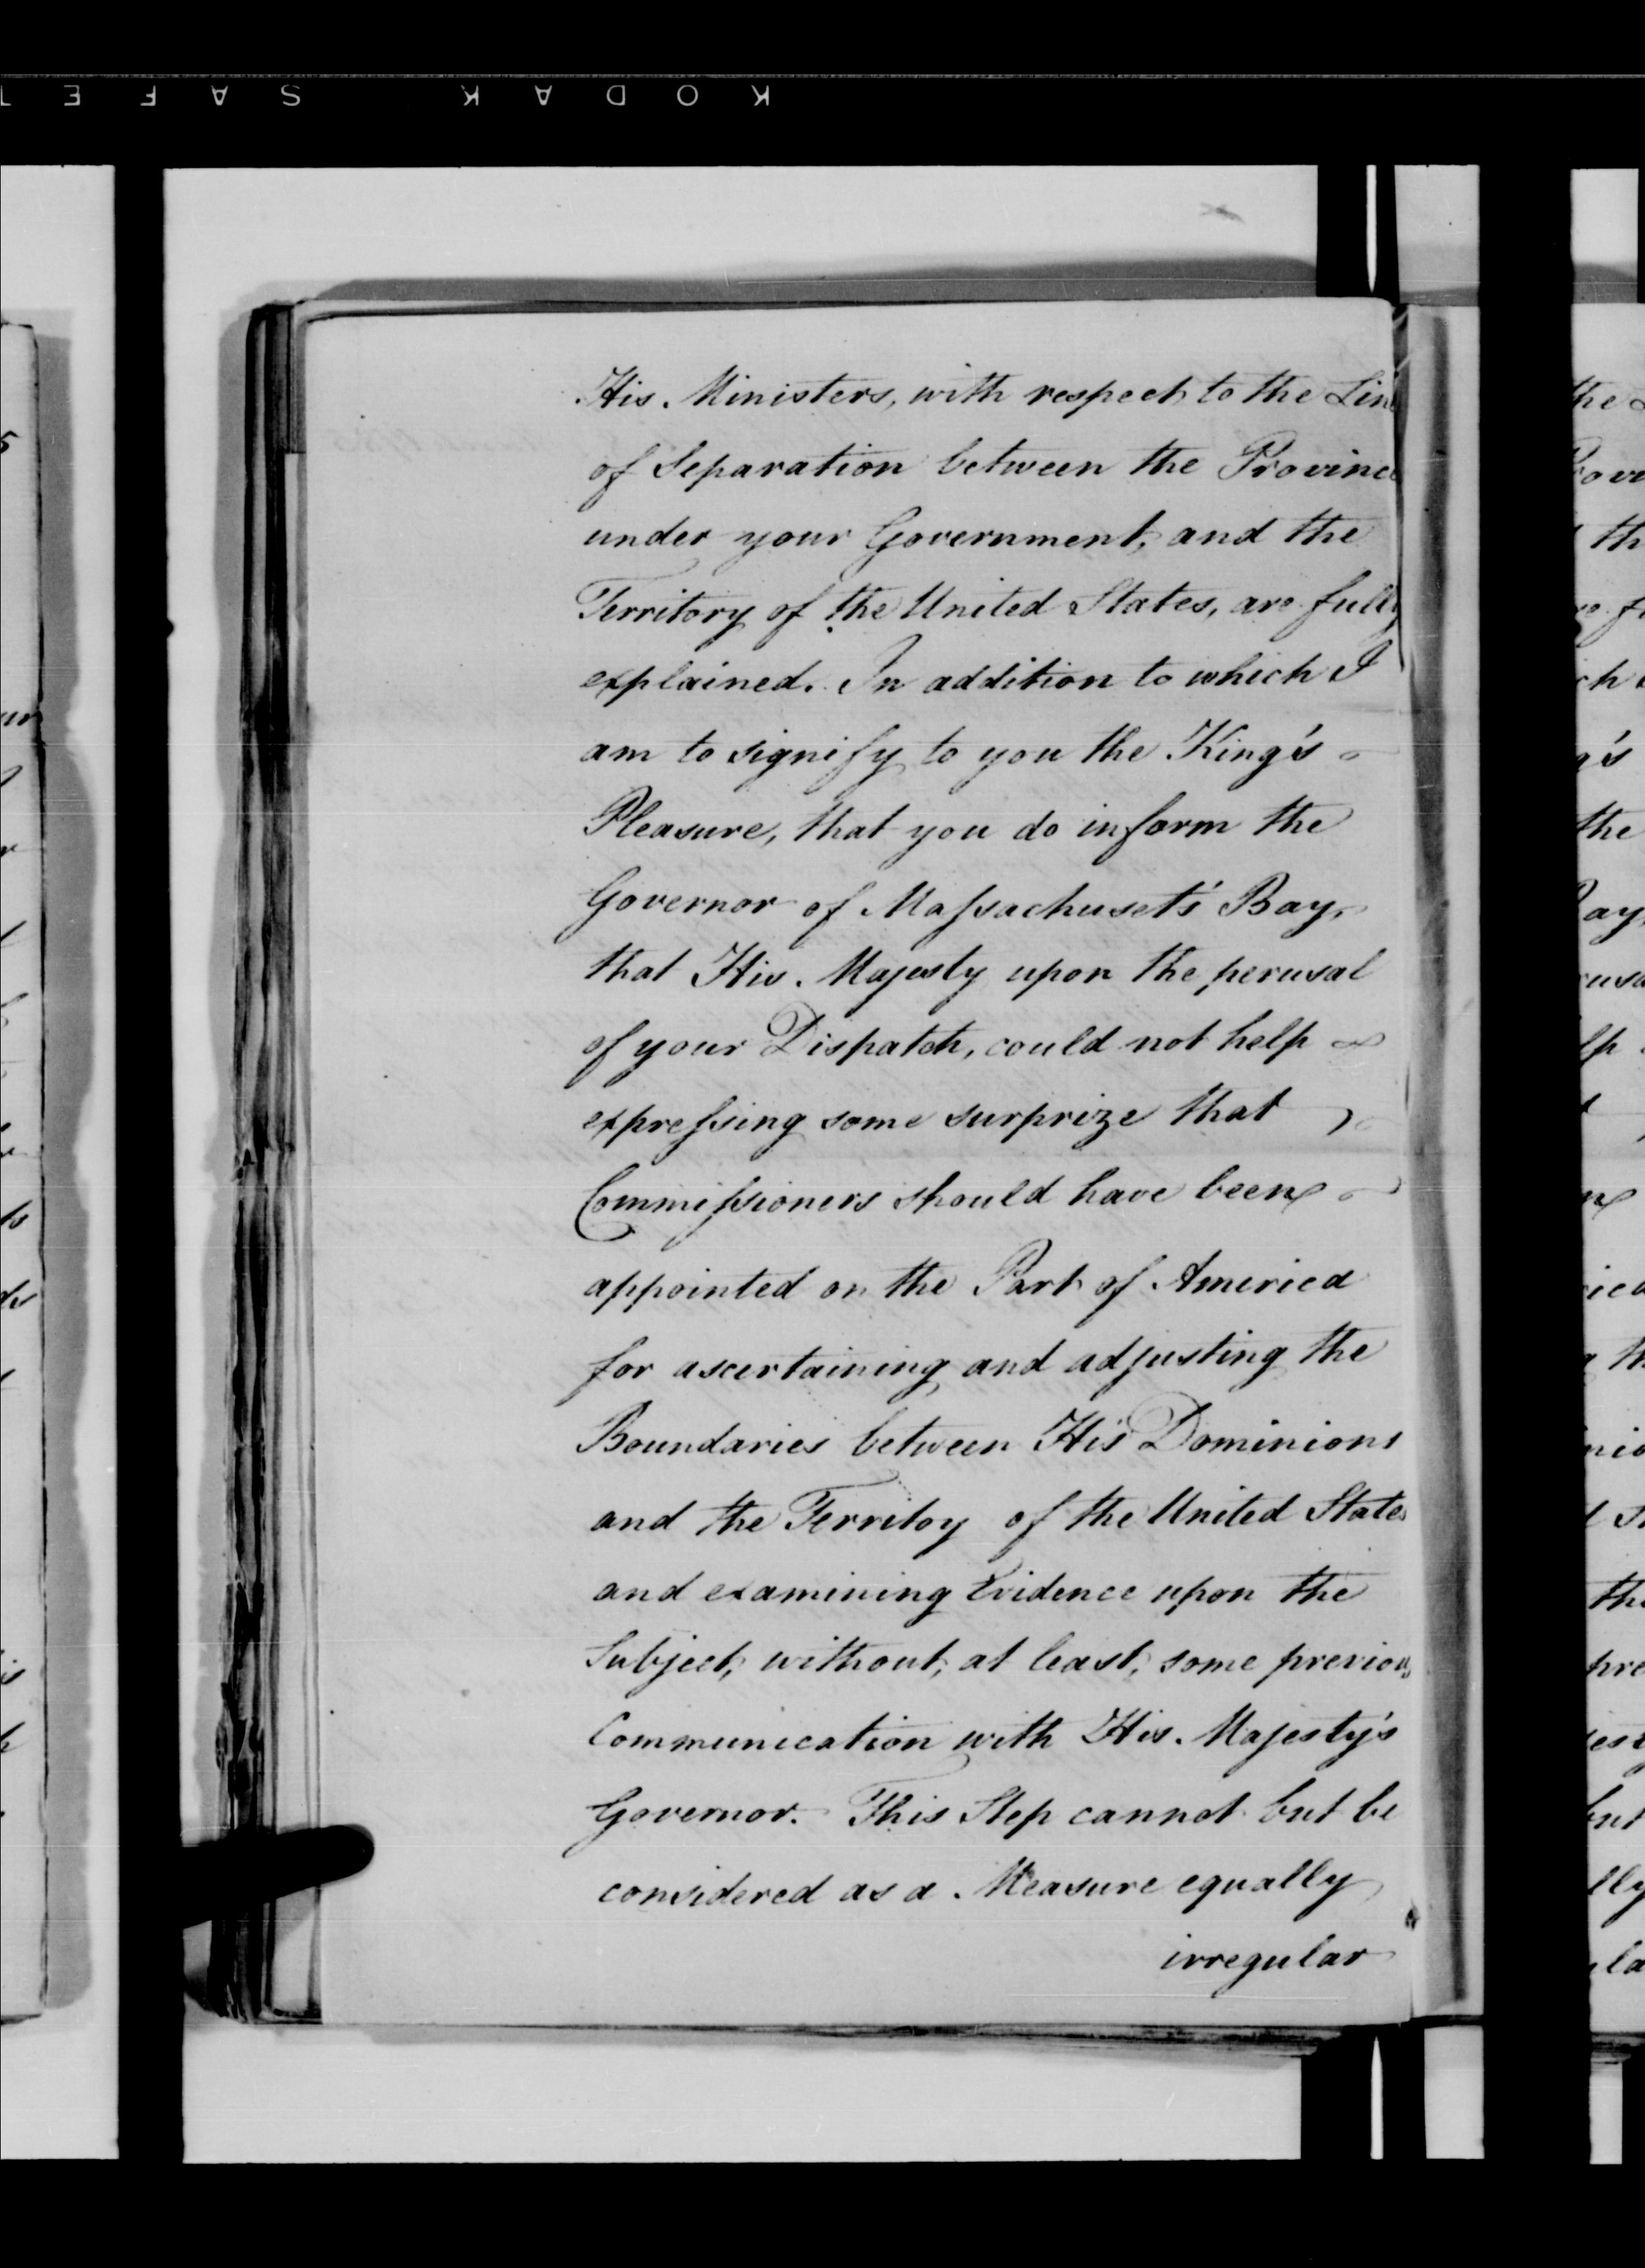 KODAK SAFE
His Ministers, with respect to the Line
of Separation between the Province
under your Government, and the
Territory of the United States, are fully
explained. In addition to which I
am to signify to you the King's
Pleasure, that you do inform the
Governor of Massachuset's Bay,
that His Majesty upon the perusal
of your Dispatch, could not help
expressing some surprize that
Commissioners should have been
appointed on the Part of America
for ascertaining and adjusting the
Boundaries between His Dominions
and the Territoy of the United States
and examining Evidence upon the
Subject, without, at least, some previous
Communication with His Majesty's
Governor. This Step cannot but be
considered as a Measure equally
irregular